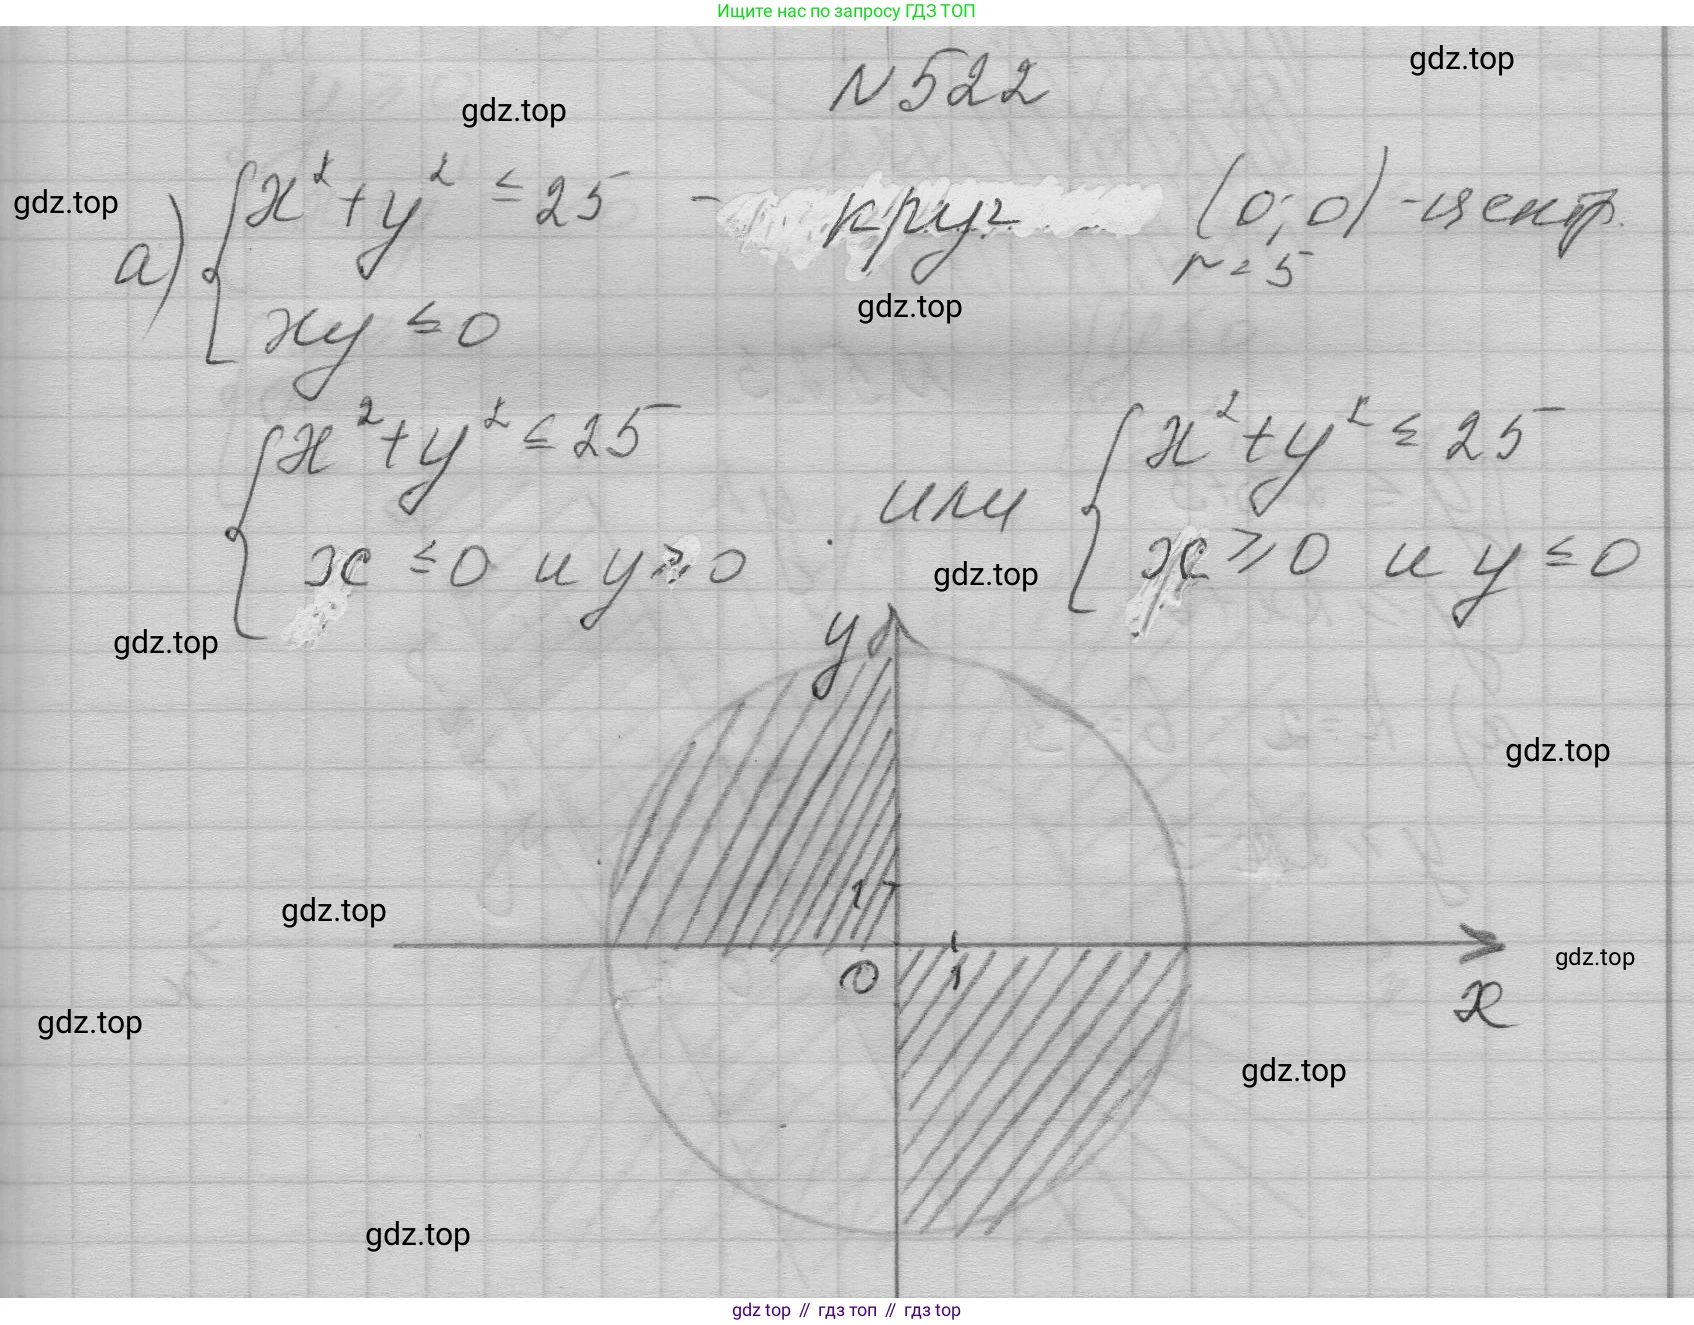 Ищите нас по запросу ГДЗ ТОП
N 522
gdz.top
gdz.top
gdz.top
а) { x² + y² ≤ 25 - круг (0; 0) - центр.
r = 5
xy ≤ 0
gdz.top
{ x² + y² ≤ 25 или { x² + y² ≤ 25
x ≤ 0 и y ≥ 0 x ≥ 0 и y ≤ 0
gdz.top
gdz.top
y
gdz.top
1
gdz.top
0 1
gdz.top
x
gdz.top
gdz.top
gdz.top
gdz top // гдз топ // гдз top